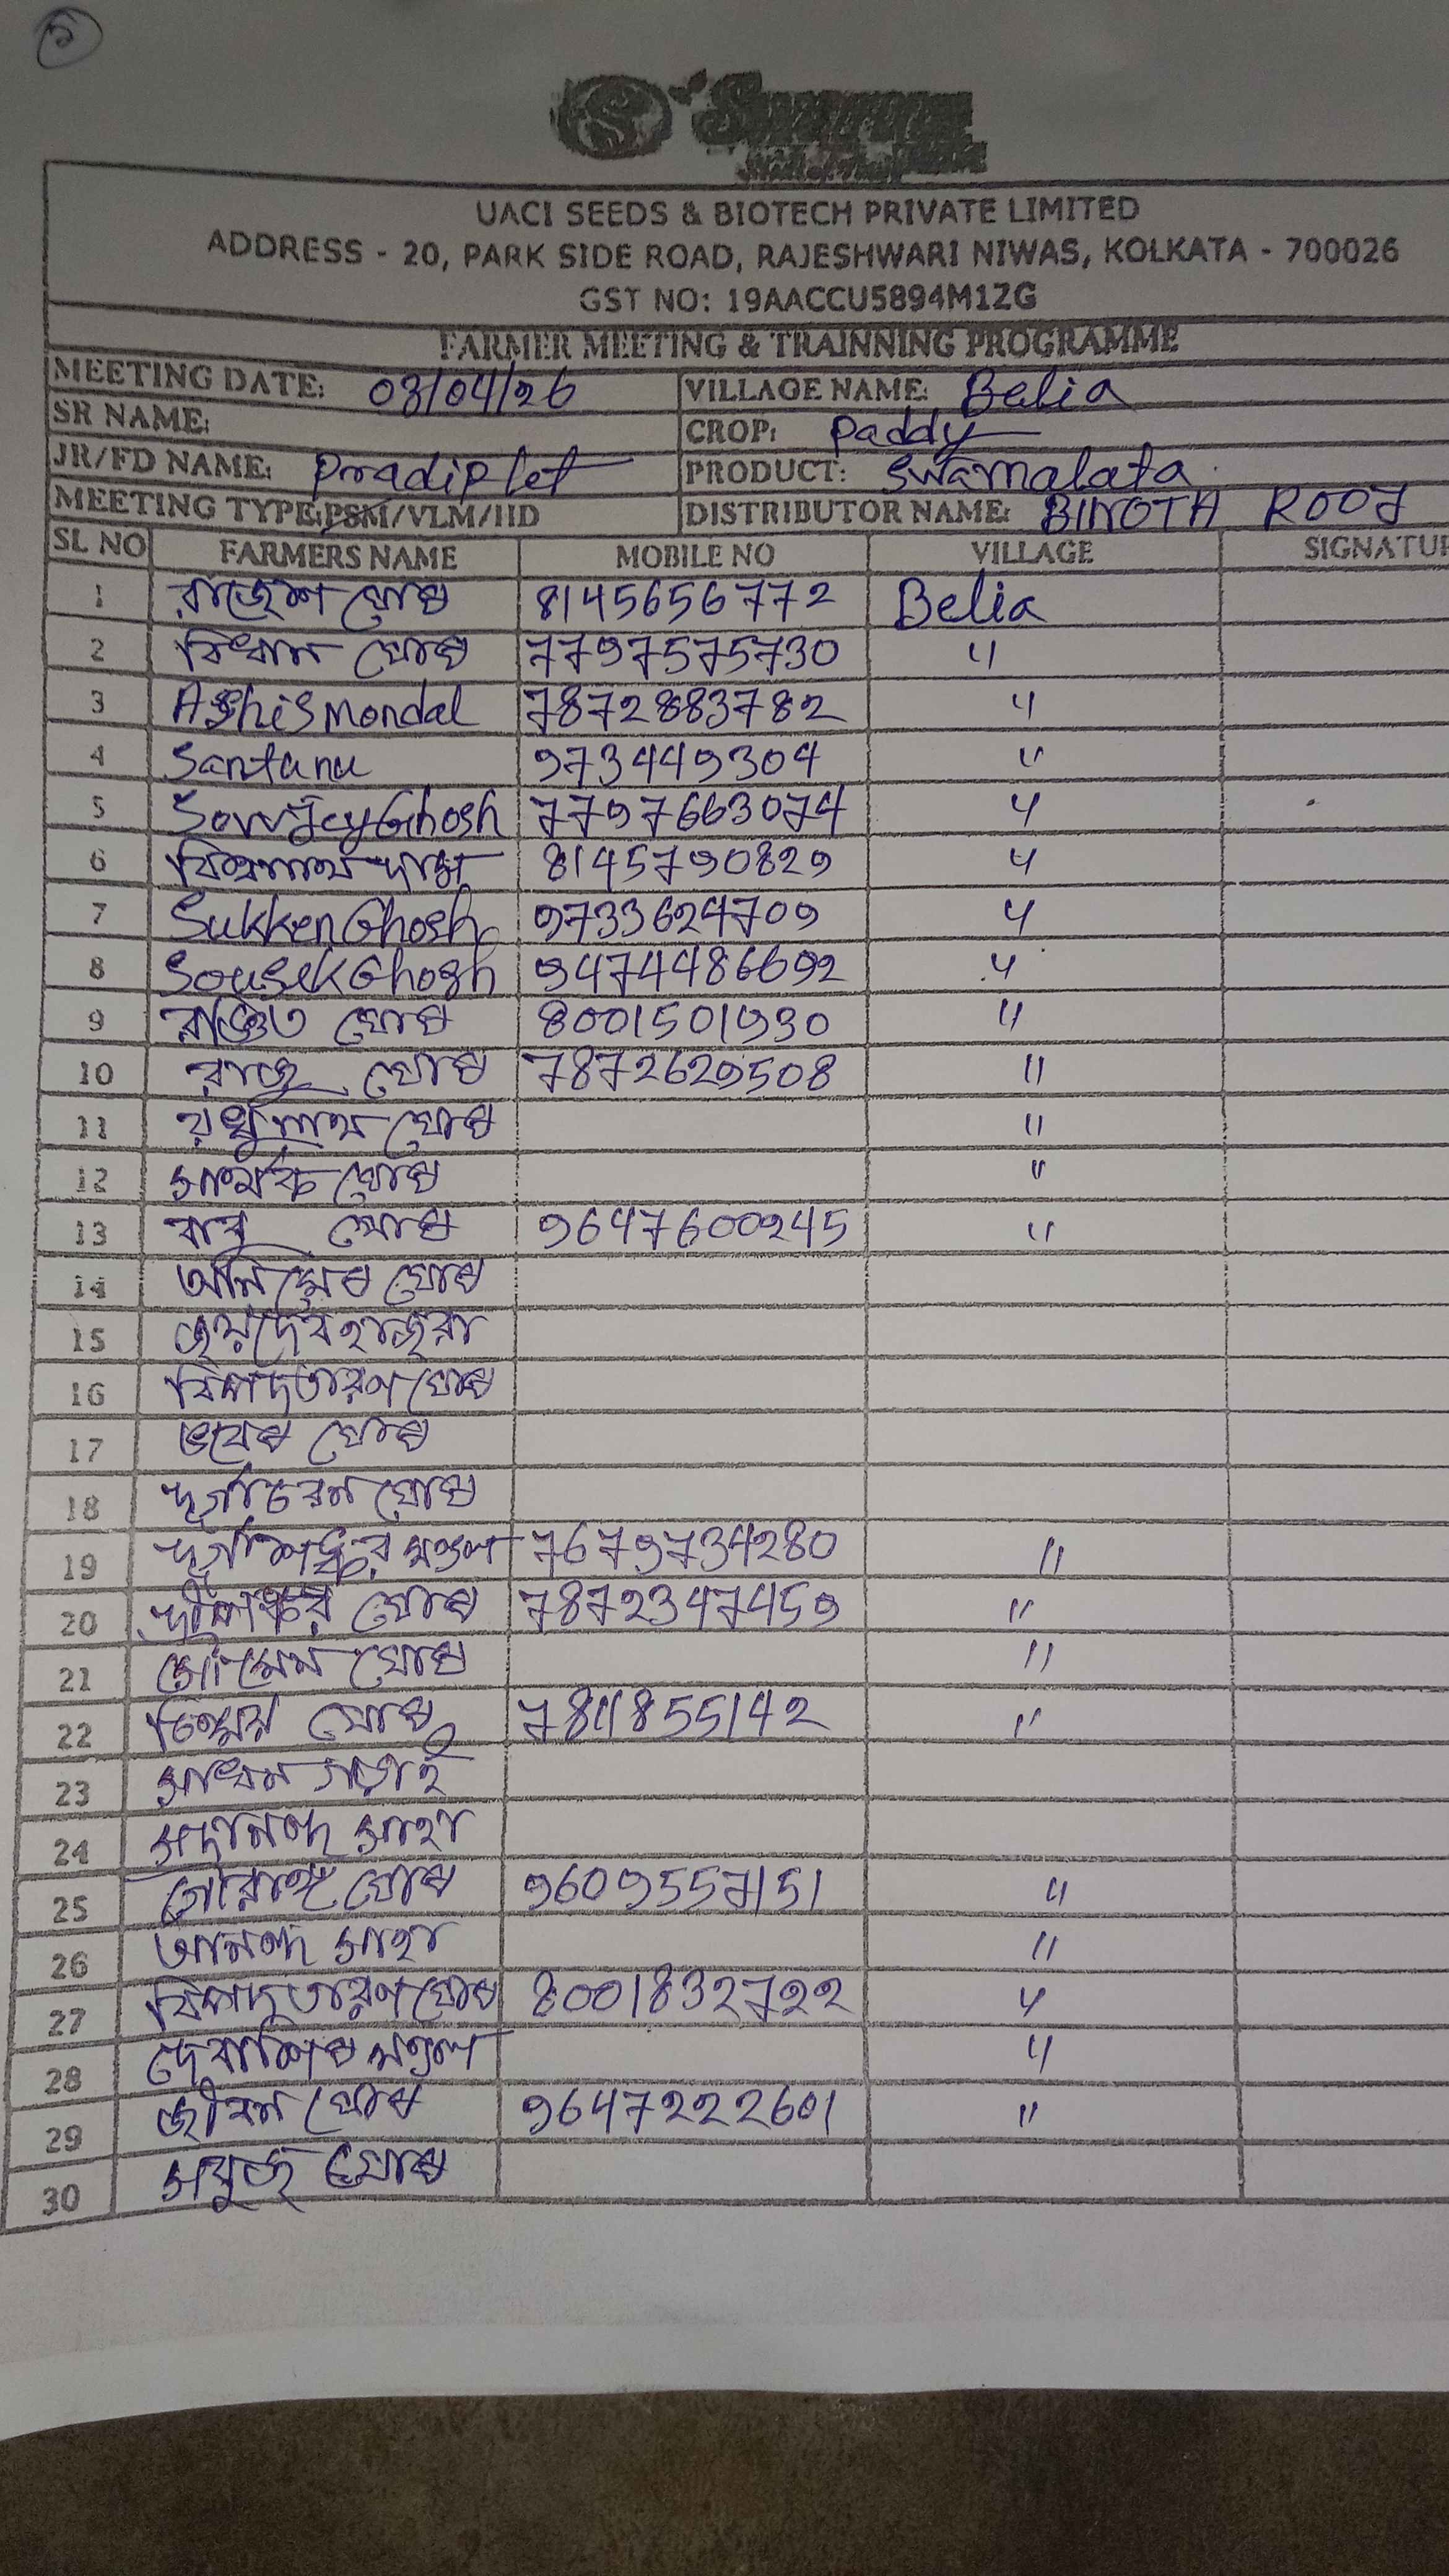 UACI SEEDS & BIOTECH PRIVATE LIMITED
ADDRESS - 20, PARK SIDE ROAD, RAJESHWARI NIWAS, KOLKATA - 700026
GST NO: 19AACCU5894M1ZG
FARMER MEETING & TRAINNING PROGRAMME
MEETING DATE: 03/04/26 VILLAGE NAME: Belia
SR NAME: CROP: Paddy
JR/FD NAME: Pradip let PRODUCT: Swarnalata
MEETING TYPE: PSM/VLM/IID DISTRIBUTOR NAME: BINOTA ROOJ
SL NO FARMERS NAME MOBILE NO VILLAGE SIGNATU
1 রাজেশ ঘোষ 8145656772 Belia
2 বিধান ঘোষ 7797575730 "
3 Ashis mondal 7872883782 "
4 Santanu 973449304 "
5 Ghosh 7797663074 "
6 বিশ্বনাথ দাস 8145790829 "
7 Sukken Ghosh 9733624709 "
8 Ghosh 9474486692 "
9 রঞ্জিত ঘোষ 8001501930 "
10 রাজু ঘোষ 7872629508 "
11 ঘোষ "
12 সার্থক ঘোষ "
13 বাবু ঘোষ 9647600245 "
14 অনিমেষ ঘোষ
15 জয়দেব হাজরা
16 বিপদতারণ ঘোষ
17 ভবেষ ঘোষ
18 দূর্গাচরন ঘোষ
19 দূর্গাশঙ্কর মণ্ডল 7679734280 "
20 ঘোষ 7872347459 "
21 সৌমেন ঘোষ "
22 চিন্ময় ঘোষ 7811855142 "
23 সাধন গড়াই
24 সদানন্দ সাহা
25 গৌরাঙ্গ ঘোষ 9609557151 "
26 আনন্দ সাহা "
27 বিপদতারণ ঘোষ 8001832722 "
28 দেবাশিষ মণ্ডল "
29 জীবন ঘোষ 9647222601 "
30 সবুজ ঘোষ